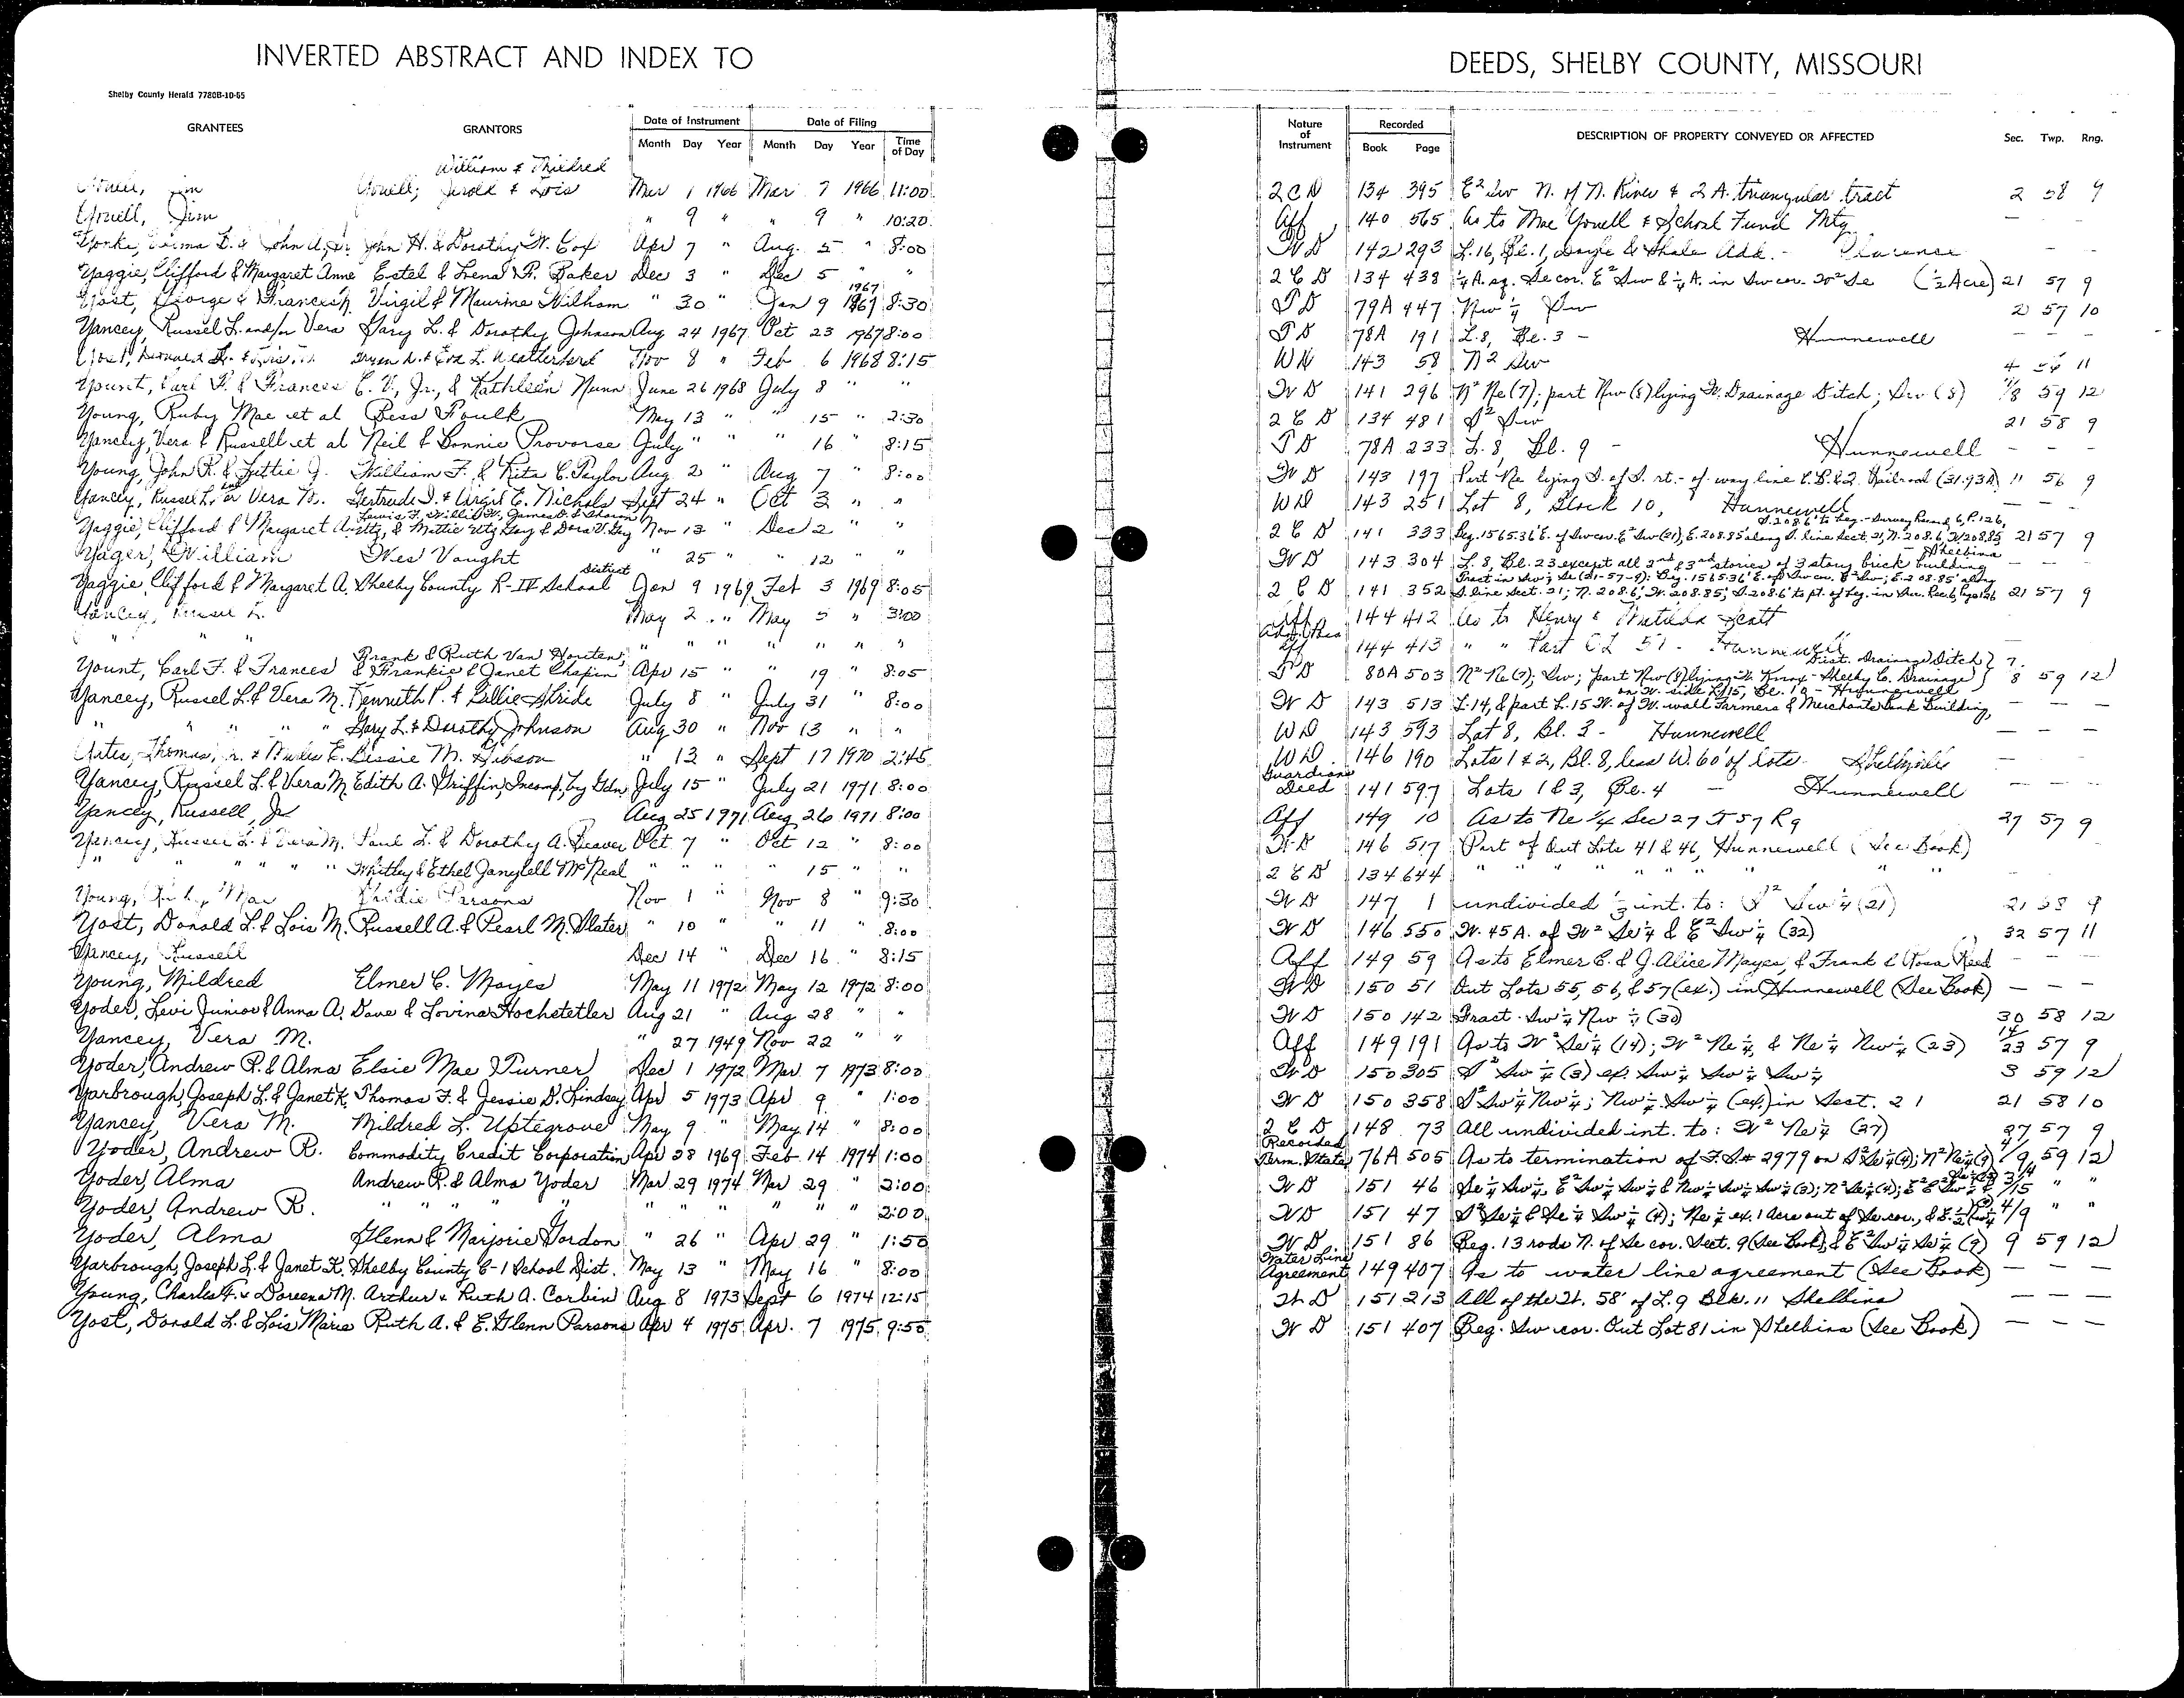 INVERTED ABSTRACT AND INDEX TO
Shelby County Herald 7780B-10-65
GRANTEES GRANTORS Date of Instrument Date of Filing
Month Day Year Month Day Year Time of Day
William & Mildred
Youell, Jim Youell, Jerold & Lois Mar 1 1966 Mar 7 1966 11:00
Youell, Jim " 9 " " 9 " 10:20
John H. & Dorothy N. Cox Apr 7 " Aug. 5 " 8:00
Yaggie, Clifford & Margaret Anne Estel & Lena R. Baker Dec 3 " Dec 5 " "
Yost, George & Frances Virgil & Maurine Wilham " 30 " Jan 9 1967 8:30
Yancey, Russel L. and/or Vera Gary L. & Dorothy Johnson Aug 24 1967 Oct 23 1967 8:00
Yost, Donald L. & Lois M. Weatherford Nov 8 " Feb 6 1968 8:15
Yount, Carl F. & Frances C. V., Jr., & Kathleen Nunn June 26 1968 July 8 " "
Young, Ruby Mae et al Bess Foulk May 13 " " 15 " 2:30
Yancey, Vera & Russell et al Neil & Bonnie Provorse July " " " 16 " 8:15
Young, John R. & Lettie J. William F. & Rita C. Taylor Aug 2 " Aug 7 " 8:00
Yancey, Russel L. or Vera M. Gertrude I. & Virgil E. Nichols Sept 24 " Oct 3 " "
Yaggie, Clifford & Margaret A. Utz, & Mittie Utz Gay & Dora V. Gay Nov 13 " Dec 2 " "
Yager, William Wes Vaught " 25 " " 12 " "
Yaggie, Clifford & Margaret A. Shelby County R-IV School District Jan 9 1969 Feb 3 1969 8:05
Yancey, Russel L. May 2 " May 5 " 3:00
" " " " " " " " " "
Frank & Ruth Van Houten,
Yount, Carl F. & Frances & Frankie & Janet Chapin Apr 15 " " 19 " 8:05
Yancey, Russel L. & Vera M. Kenneth P. & Lillie Stride July 8 " July 31 " 8:00
" " " " " Gary L. & Dorothy Johnson Aug 30 " Nov 13 " "
Yates, Thomas, Jr. & E. Bessie M. Gibson " 13 " Sept 17 1970 2:45
Yancey, Russel L. & Vera M. Edith A. Griffin, Incomp, by Gdn July 15 " July 21 1971 8:00
Yancey, Russell, Jr Aug 25 1971 Aug 26 1971 8:00
Yancey, Russel L. & Vera M. Paul L. & Dorothy A. Beaver Oct. 7 " Oct 12 " 8:00
" " " " " Whitley & Ethel Janyell McNeal " " " " 15 " "
Young, Ruby Mae Parsons Nov 1 " Nov 8 " 9:30
Yost, Donald L. & Lois M. Russell A. & Pearl M. Slater " 10 " " 11 " 8:00
Yancey, Russell Dec 14 " Dec 16 " 8:15
Young, Mildred Elmer C. Mayes May 11 1972 May 12 1972 8:00
Yoder, Levi Junior & Anna A. Dave & Lovina Hochstetler Aug 21 " Aug 28 " "
Yancey, Vera M. " 27 1949 Nov 22 " "
Yoder, Andrew R. & Alma Elsie Mae Turner Dec 1 1972 Mar 7 1973 8:00
Yarbrough, Joseph L. & Janet K. Thomas F. & Jessie D. Lindsey Apr 5 1973 Apr 9 " 1:00
Yancey, Vera M. Mildred L. Uptegrove May 9 " May 14 " 8:00
Yoder, Andrew R. Commodity Credit Corporation Apr 28 1969 Feb 14 1974 1:00
Yoder, Alma Andrew R. & Alma Yoder Mar 29 1974 Mar 29 " 2:00
Yoder, Andrew R. " " " " " " " " " 2:00
Yoder, Alma Glenn & Marjorie Gordon " 26 " Apr 29 " 1:50
Yarbrough, Joseph L. & Janet K. Shelby County C-1 School Dist. May 13 " May 16 " 8:00
Young, Charles F. & Doreena M. Arthur & Ruth A. Corbin Aug 8 1973 Sept 6 1974 12:15
Yost, Donald L. & Lois Marie Ruth A. & E. Glenn Parsons Apr 4 1975 Apr. 7 1975 9:55
DEEDS, SHELBY COUNTY, MISSOURI
Nature of Instrument Recorded Book Page DESCRIPTION OF PROPERTY CONVEYED OR AFFECTED Sec. Twp. Rng.
2 C D 134 395 E² Sw N. of N. River & 2 A. triangular tract 2 58 9
Aff 140 565 As to Mae Youell & School Fund Mtg — —
W D 142 293 L. 16, Bl. 1, Doyle & Shale Add. - Clarence — —
2 C D 134 438 ¼ A. sq. Se cor. E² Sw & ¼ A. in Sw cor. W² Se (½ Acre) 21 57 9
T D 79A 447 Nw ¼ Sw 2 57 10
T D 78A 191 L. 8, Bl. 3 - Hunnewell — —
W D 143 58 N² Sw 4 56 11
W D 141 296 N² Ne (7); part Nw (8) lying W. Drainage Ditch; Sw (8) 7/8 59 12
2 C D 134 481 S² Sw 21 58 9
T D 78A 233 L. 8, Bl. 9 - Hunnewell — — —
W D 143 197 Part Ne lying S. of S. rt.-of-way line C.B. & Q. Railroad (31.93A) 11 56 9
W D 143 251 Lot 8, Block 10, Hunnewell
S. 208.6' to beg. - Survey Record 6, P. 126,
2 C D 141 333 Beg. 1565.36' E. of Sw cor. E² Sw (21), E. 208.85' along S. line Sect. 21, N. 208.6', W. 208.85' 21 57 9
W D 143 304 L. 8, Bl. 23 except all 2nd & 3rd stories of 3 story brick building - Shelbina — — —
Tract in Sw ¼ Se (21-57-9): Beg. 1565.36' E. of Sw cor. E² Sw; E. 208.85' along
2 C D 141 352 S. line Sect. 21; N. 208.6', W. 208.85'; S. 208.6' to pt. of beg. in Sur. Rec. 6, Page 126 21 57 9
Aff 144 412 As to Henry & Matilda Scott
Aff 144 413 " " Part OL 51 - Hunnewell —
Dist. Drainage Ditch
T D 80A 503 N² Ne (7); Sw; part Nw (8) lying W. Knox-Shelby Co. Drainage 7. 8 59 12
on W. side L. 15, Bl. 10 - Hunnewell
W D 143 513 L. 14, & part L. 15 W. of W. wall Farmers & Merchants Bank Building, — — —
W D 143 593 Lot 8, Bl. 3 - Hunnewell — — —
W D 146 190 Lots 1 & 2, Bl. 8, less W. 60' of lots - Shelbyville — — —
Guardians Deed 141 597 Lots 1 & 3, Bl. 4 - Hunnewell — — —
Aff 149 10 As to Ne ¼ Sec 27 T 57 R 9 27 57 9
W D 146 517 Part of Out Lots 41 & 46, Hunnewell (See Book)
2 C D 134 644 " " " " " " "
W D 147 1 undivided ⅓ int. to: S² Sw ¼ (21) 21 58 9
W D 146 550 W. 45 A. of W² Se ¼ & E² Sw ¼ (32) 32 57 11
Aff 149 59 As to Elmer C. & J. Alice Mayes, & Frank & Rosa Reed — — —
W D 150 51 Out Lots 55, 56, & 57 (ex.) in Hunnewell (See Book) — — —
W D 150 142 Fract. Sw ¼ Nw ¼ (30) 30 58 12
Aff 149 191 As to W² Se ¼ (14); W² Ne ¼, & Ne ¼ Nw ¼ (23) 14/23 57 9
W D 150 305 S² Sw ¼ (3) ex. Sw ¼ Sw ¼ Sw ¼ 3 59 12
W D 150 358 S² Sw ¼ Nw ¼; Nw ¼ Sw ¼ (ex.) in Sect. 21 21 58 10
2 C D 148 73 All undivided int. to: W² Ne ¼ (27) 27 57 9
Recorded Term. State 76A 505 As to termination of F.S.# 2979 on S² Se ¼ (4); N² Ne ¼ (9) 4/9 59 12
W D 151 46 Se ¼ Sw ¼, E² Sw ¼ Sw ¼ & Nw ¼ Sw ¼ Sw ¼ (3); N² Se ¼ (4); " "
W D 151 47 S² Se ¼ & Se ¼ Sw ¼ (4); Ne ¼ ex. 1 Acre out of Se cor., & E. ½ 4/9 " "
W D 151 86 Beg. 13 rods N. of Se cor. Sect. 9 (See Book), & E² Sw ¼ Se ¼ (9) 9 59 12
Water Line Agreement 149 407 As to water line agreement (See Book) — — —
W D 151 213 All of the W. 58' of L. 9 Blk. 11 Shelbina — — —
W D 151 407 Beg. Sw cor. Out Lot 81 in Shelbina (See Book) — — —